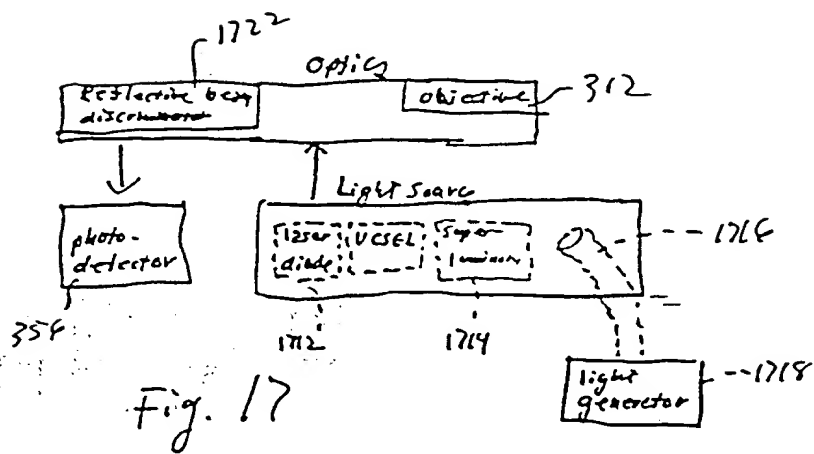 1722
Optics
Reflective beam
objective
312
Light Source
photo-
detector
354
laser
diode
VCSEL
Super
luminous
1716
1712
1714
light
generator
1718
Fig. 17